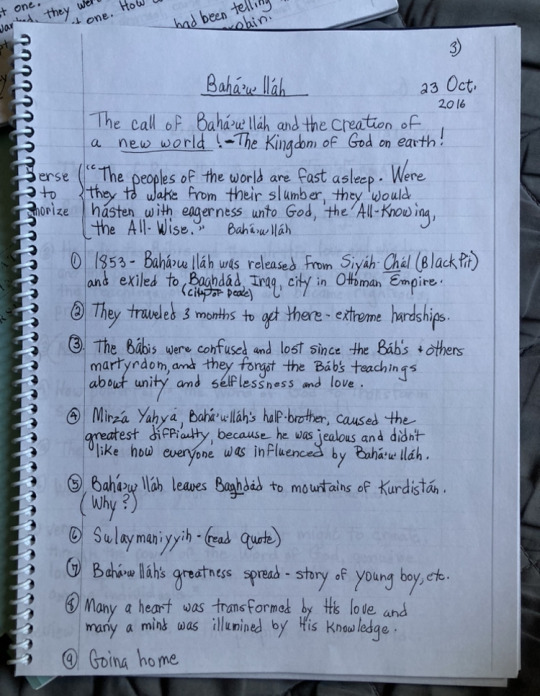 st one.
they were
one. How
had been telling
3)
Bahá'u'lláh
23 Oct.
2016
The call of Bahá'u'lláh and the creation of
a new world! - The Kingdom of God on earth!
erse
to
morize
"The peoples of the world are fast asleep. Were
they to wake from their slumber, they would
hasten with eagerness unto God, the All-Knowing,
the All-Wise." Bahá'u'lláh
① 1853 - Bahá'u'lláh was released from Siyáh-Chál (Black Pit)
and exiled to Baghdád, Iraq, city in Ottoman Empire.
(city of peace)
② They traveled 3 months to get there - extreme hardships.
③ The Bábís were confused and lost since the Báb's + others
martyrdom, and they forgot the Báb's teachings
about unity and selflessness and love.
④ Mirzá Yahyá, Bahá'u'lláh's half-brother, caused the
greatest difficulty, because he was jealous and didn't
like how everyone was influenced by Bahá'u'lláh.
⑤ Bahá'u'lláh leaves Baghdád to mountains of Kurdistán.
(Why?)
⑥ Sulaymaniyyih - (read quote)
⑦ Bahá'u'lláh's greatness spread - story of young boy, etc.
⑧ Many a heart was transformed by His love and
many a mind was illumined by His knowledge.
⑨ Going home